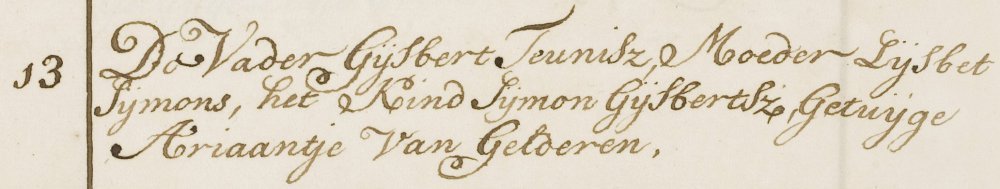 13 Do Vader Gijsbert Teunisz, Moeder Lijsbet
Sijmons, het Kind Sijmon Gijsbertsz, Getuijge
Ariaantje Van Gelderen.